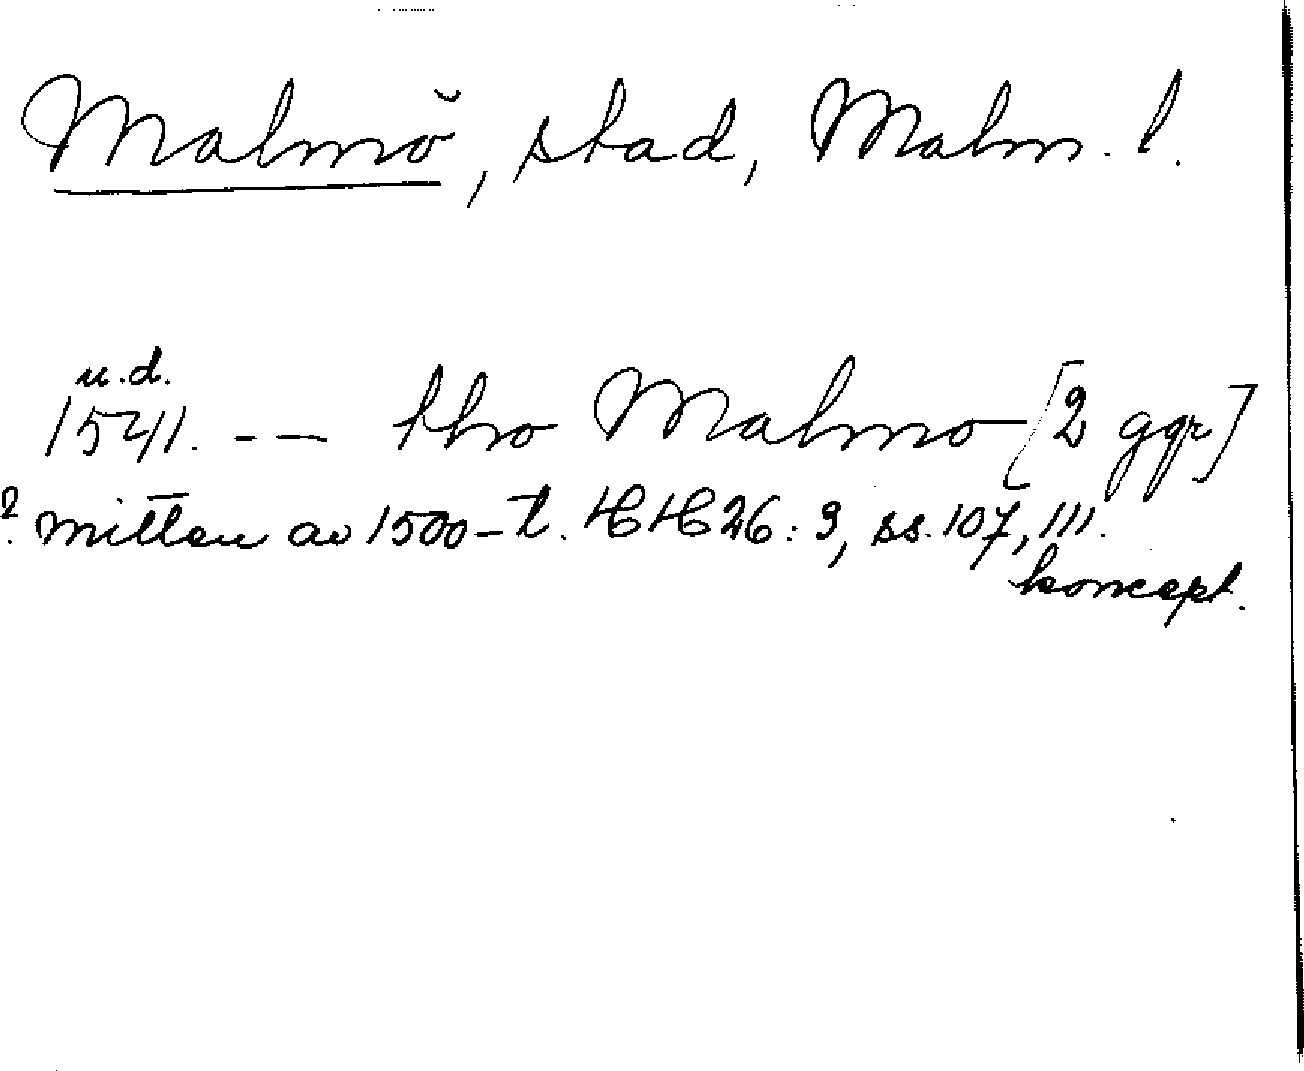 Malmö, stad, Malm. l.
u.d.
1541. -- tho Malmo [2 ggr]
? mitten av 1500-t. HH 26: 3, ss. 107, 111.
koncept.